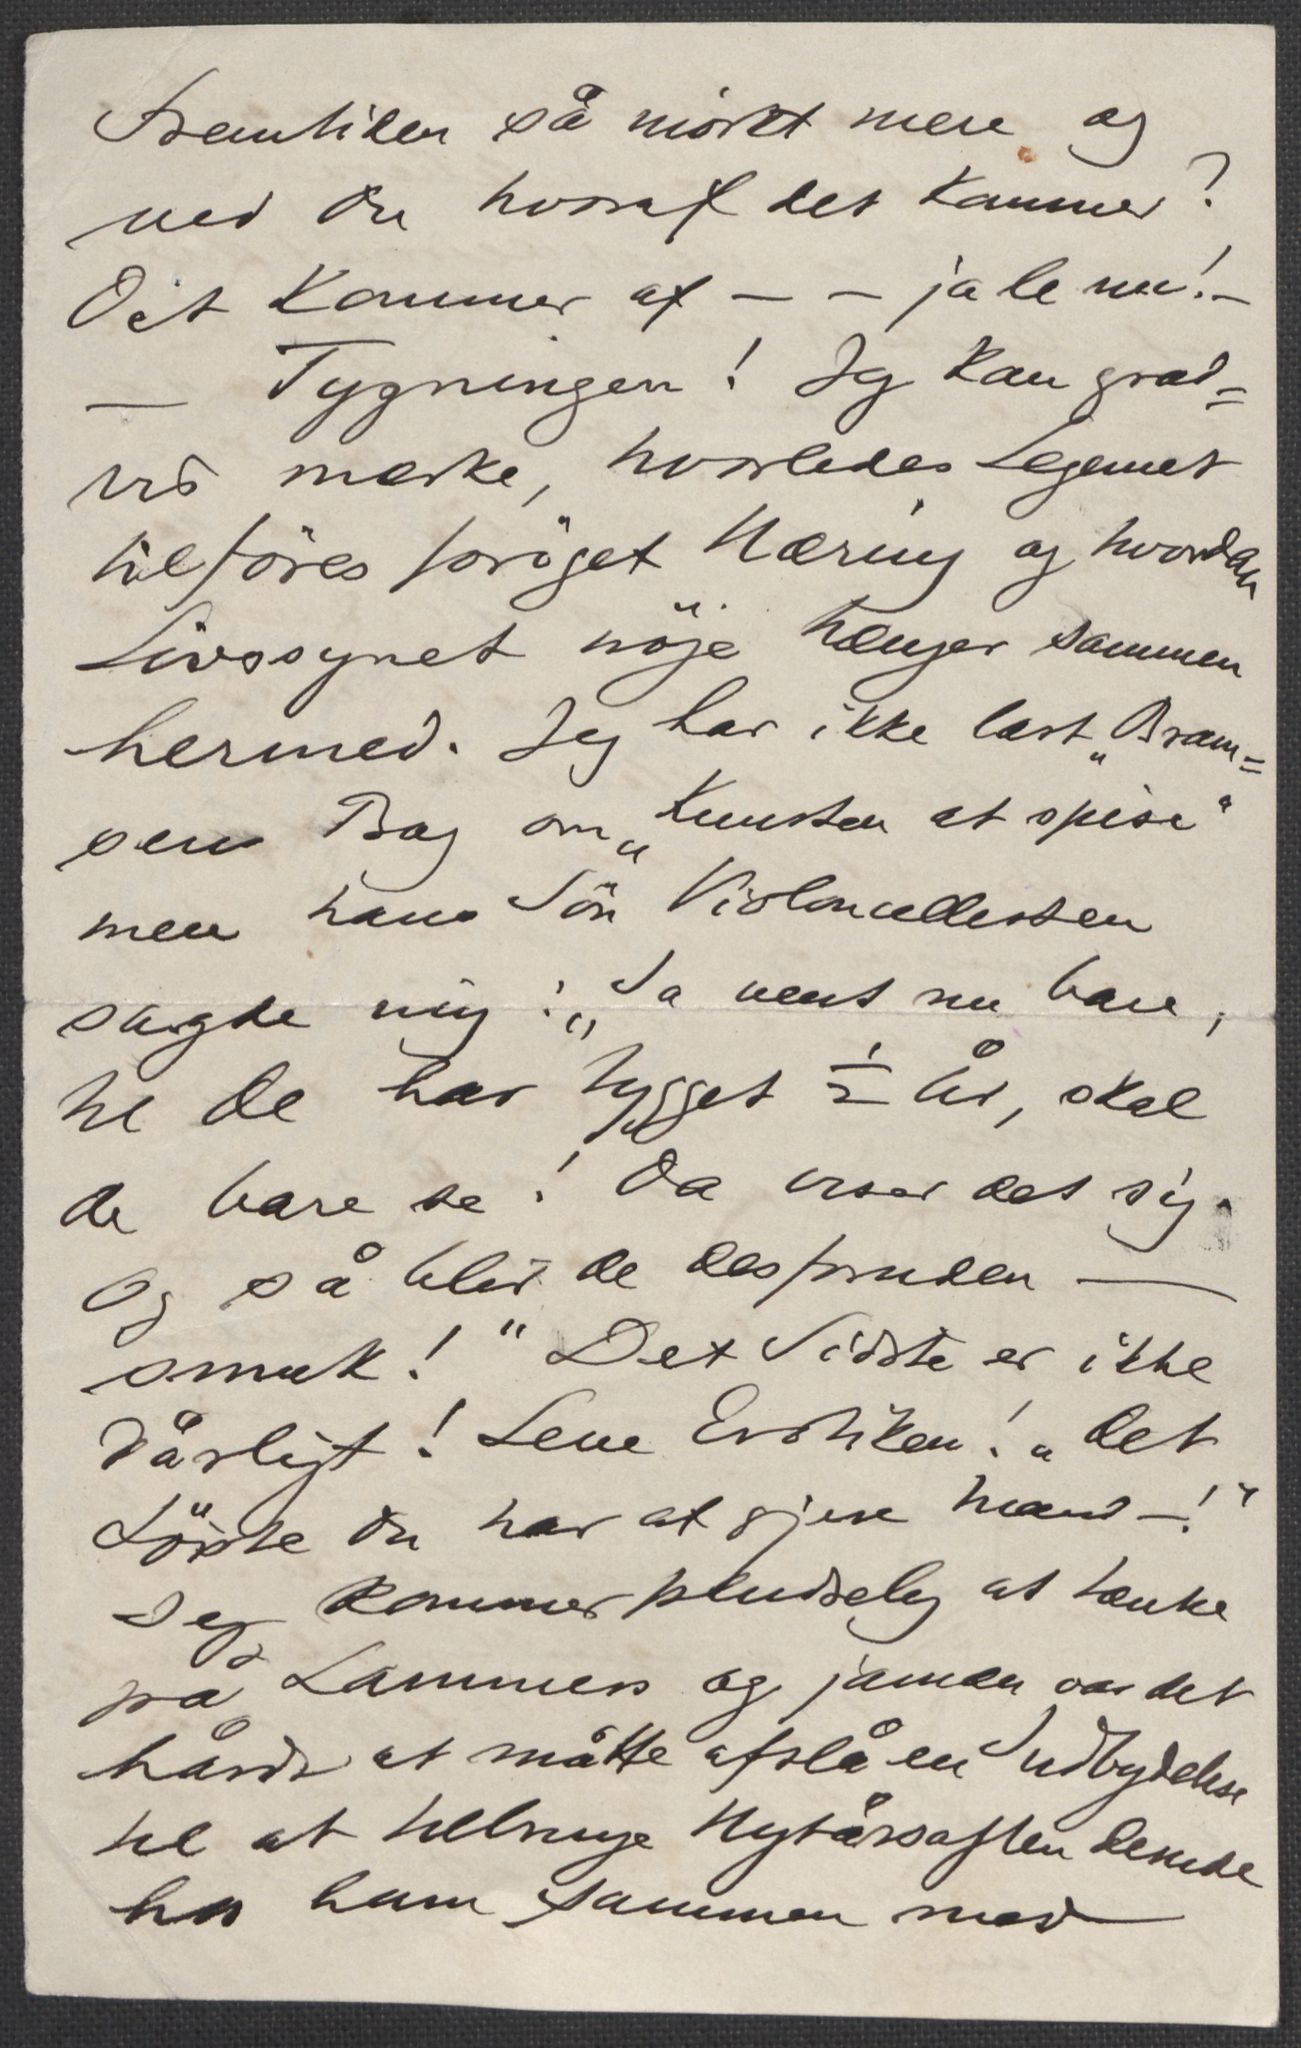 Fremtiden så mörkt mere og
ved du hvoraf det kommer?
Det kommer af — — ja le nu! —
— Tygningen! Jeg kan grad=
vis mærke, hvorledes Legemet
tilföres foröget Næring og hvordan
Livssynet nöje hænger sammen
hermed. Jeg har ikke læst „Bram=
sens Bog om „Kunsten at spise"
men hans Sön Violoncellisten
sagde mig: „Ja vent nu bare,
til De har tygget ½ År, skal
de bare se! Da viser det sig.
Og så blir de desforuden —
smuk!" Det Sidste er ikke
dårligt! Leve Erotiken! „Det
Förste du har at gjöre Mand —!"
Jeg kommer pludselig at tænke
på Lammers og jamen var det
hårdt at måtte afslå en Indbydelse
til at tilbringe Nytårsaften dernede
hos ham sammen med